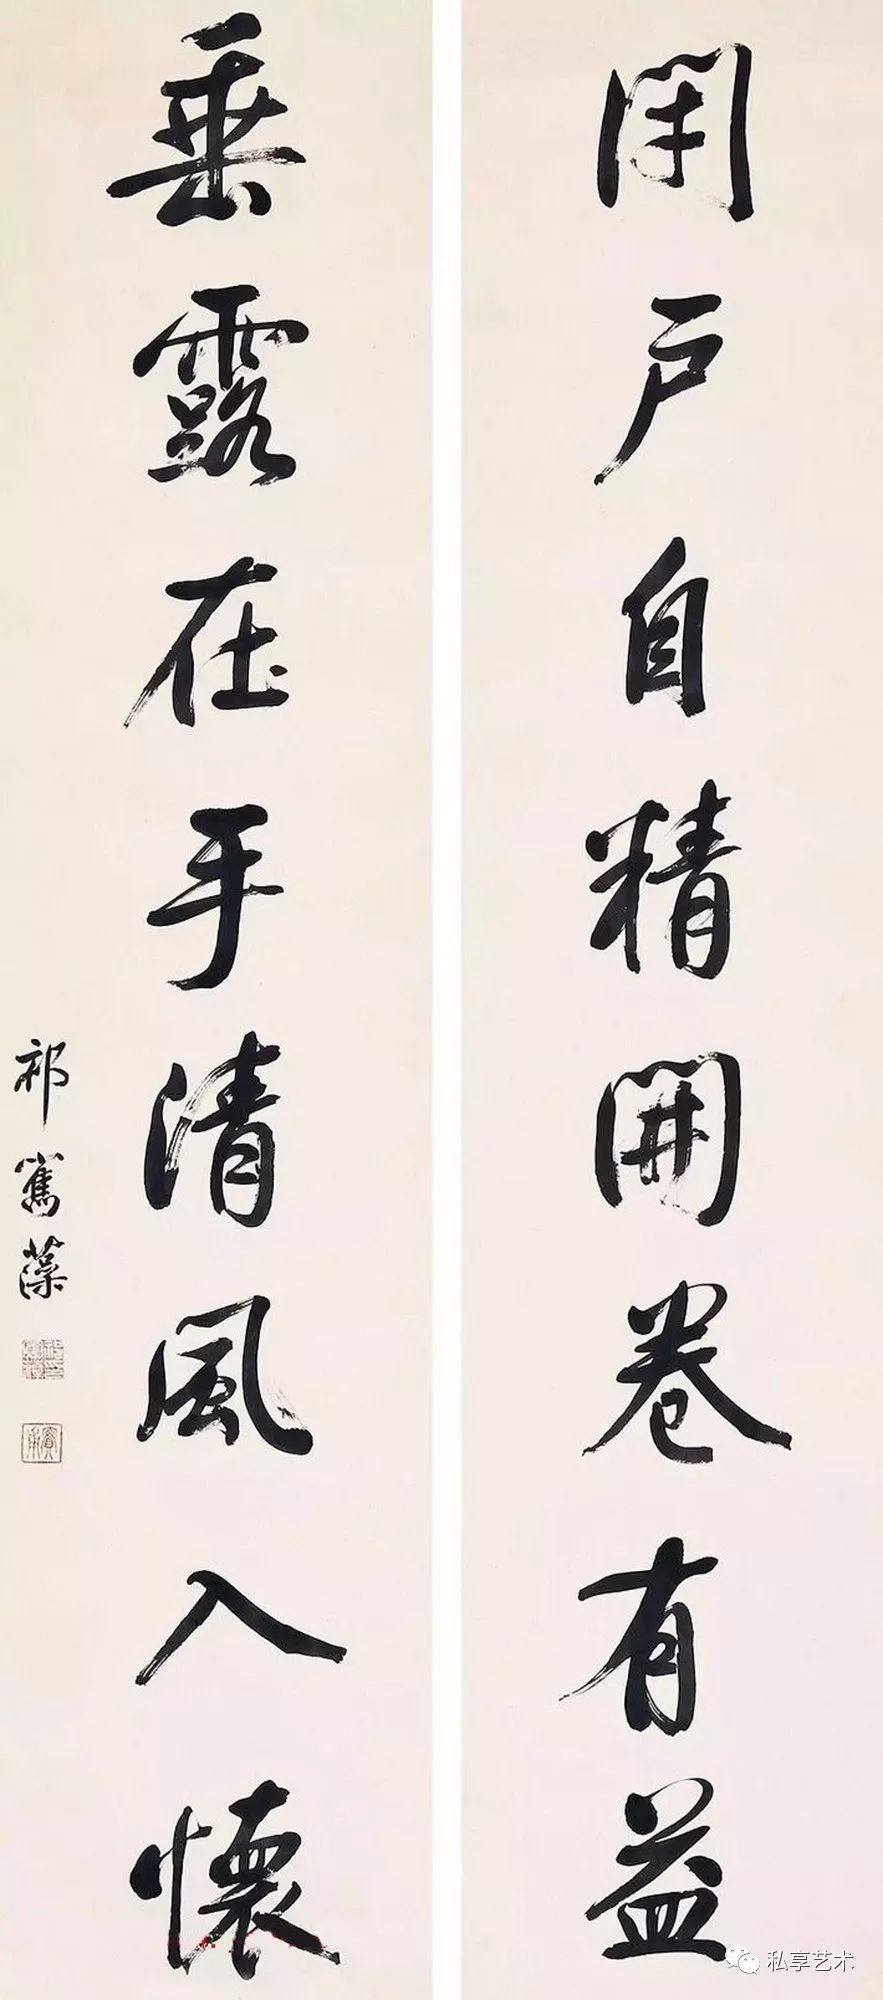 閑戶自精開卷有益
垂露在手清風入懷
祁寯藻
私享艺术